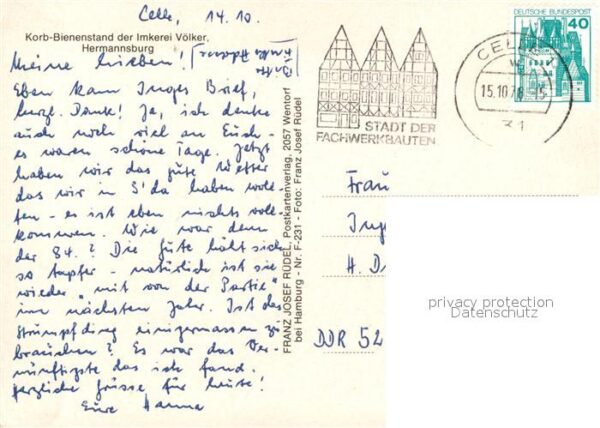 Celle, 14.10.
Korb-Bienenstand der Imkerei Völker,
Hermannsburg
Meine Lieben!
[Bitte
Adresse]
Eben kam Inges Brief,
herzl. Dank! Ja, ich denke
auch noch viel an Euch -
es waren schöne Tage. Jetzt
haben wir das gute Wetter
das wir in S'da haben woll-
ten - es ist eben nichts voll-
kommen. Wie war denn
der 84.? Die gute hält sich
so tapfer - natürlich ist sie
wieder "mit von der Partie"
im nächsten Jahr. Ist das
Strumpfding einigermassen zu
brauchen? Es war das Ver-
nünftigste das ich fand.
Herzliche Grüsse für heute!
Eure Hanna
FRANZ JOSEF RÜDEL, Postkartenverlag, 2057 Wentorf
bei Hamburg - Nr. F-231 - Foto: Franz Josef Rüdel
STADT DER
FACHWERKBAUTEN
CELLE
15.10.78-15
31
DEUTSCHE BUNDESPOST
40
Frau
Ing
H. D
DDR 52
privacy protection
Datenschutz